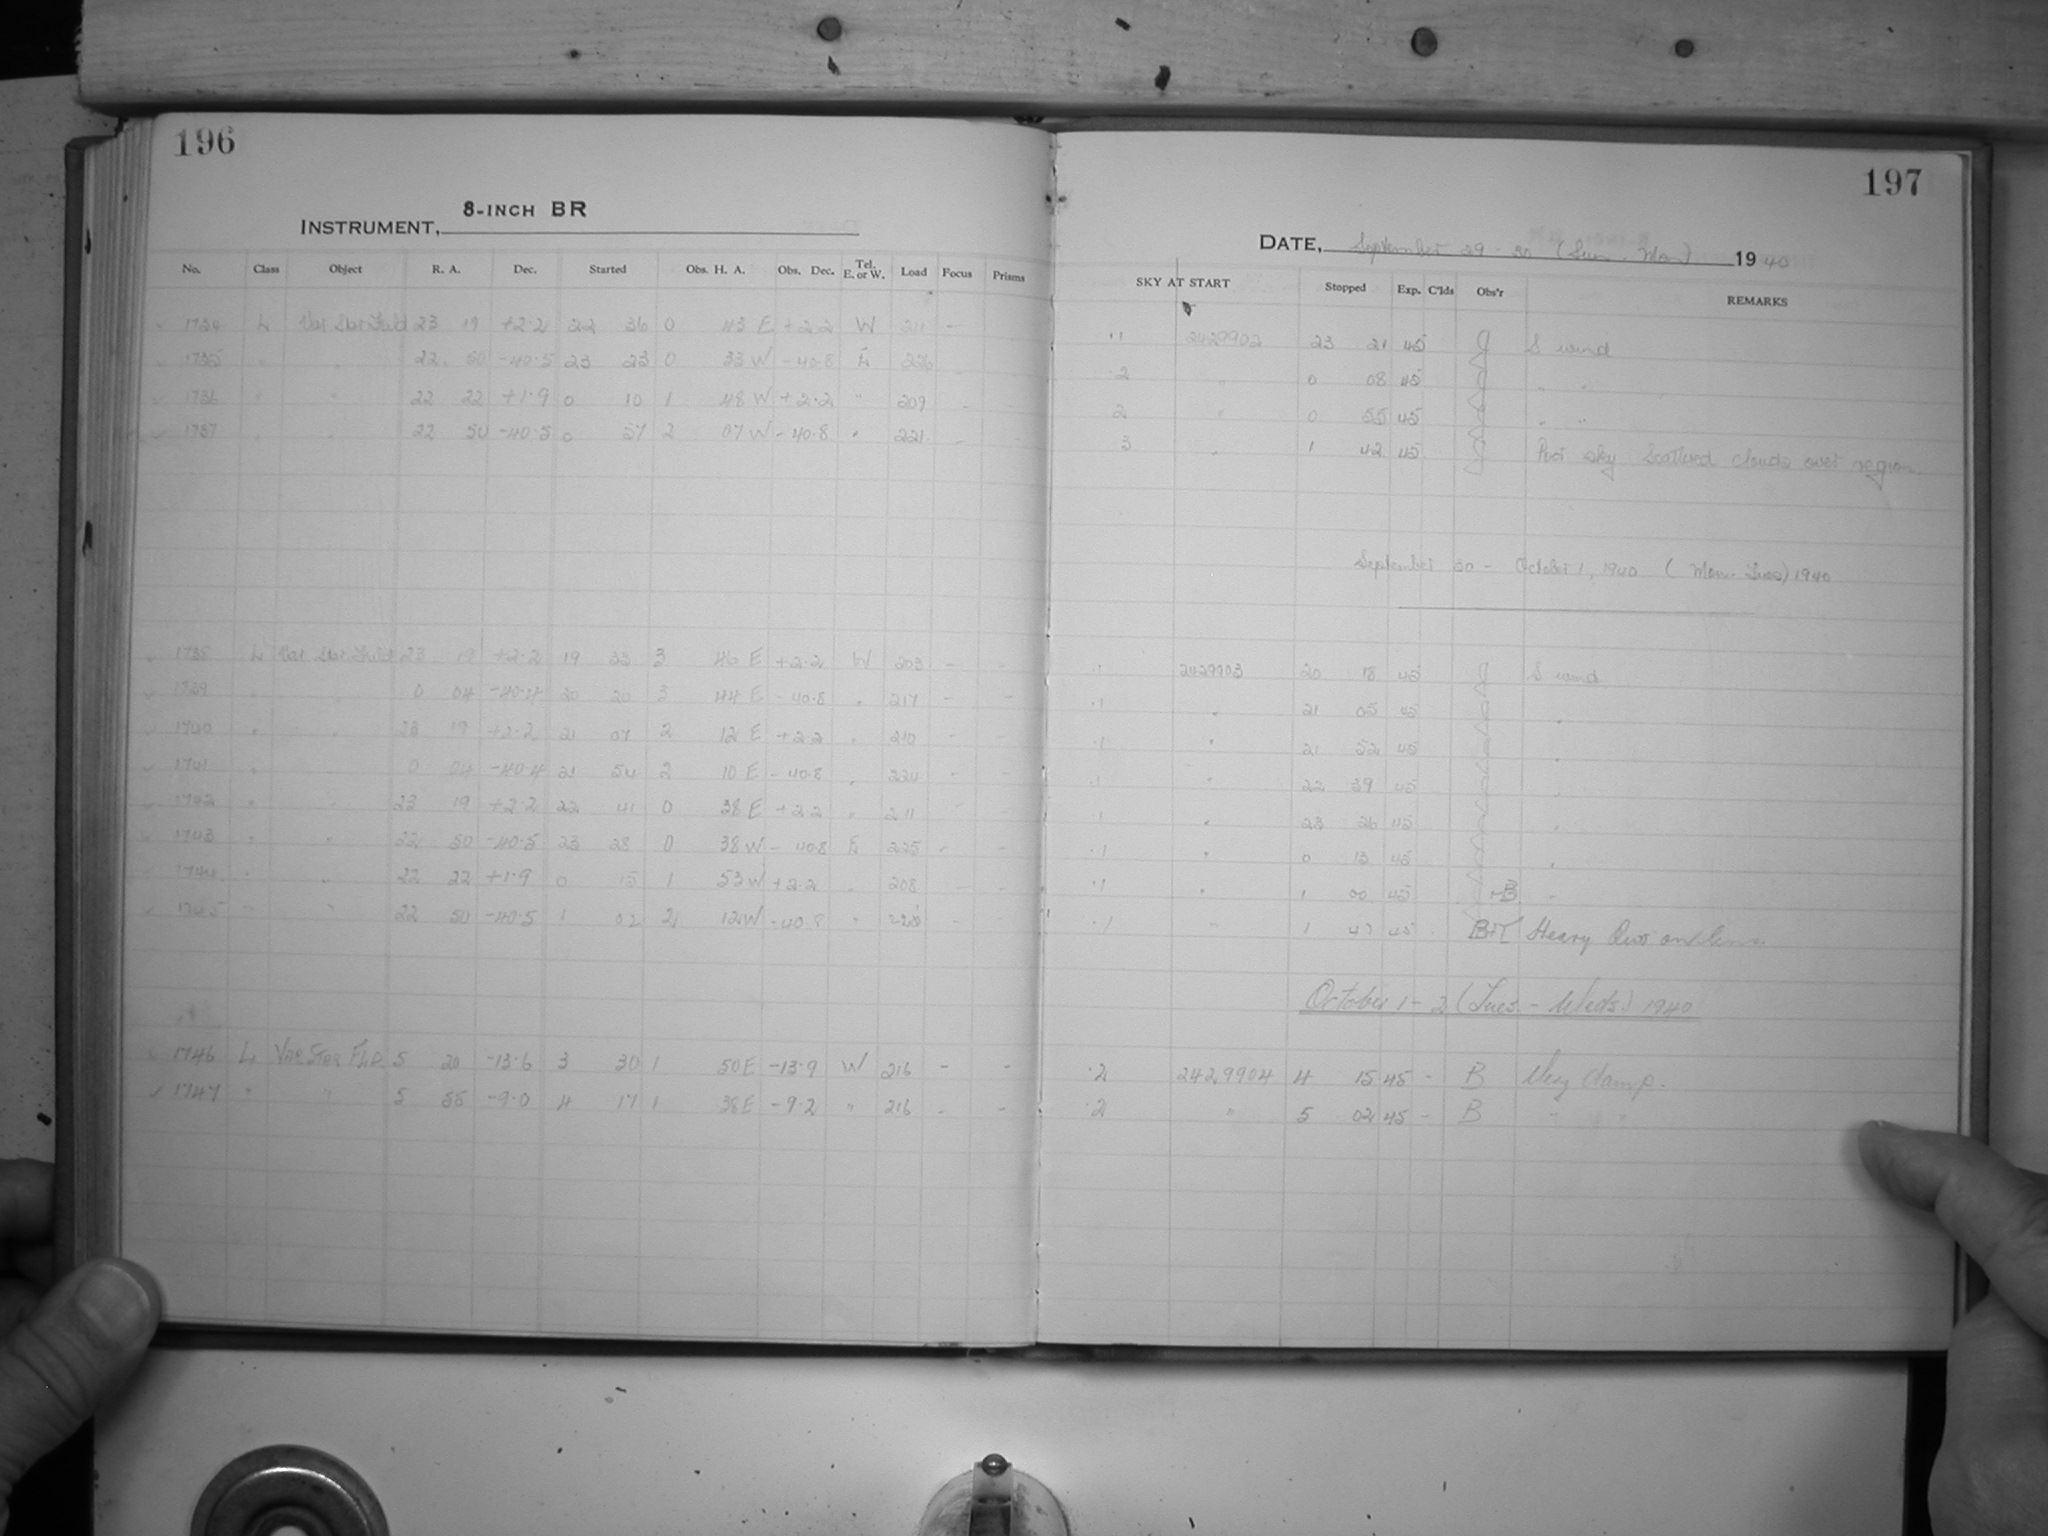 196
8-INCH BR
INSTRUMENT,
No. Class Object R. A. Dec. Started Obs. H. A. Obs. Dec. Tel. E. or W. Load Focus Prisms
1734 L Var Star Field 23 19 +2.2 22 36 0 43 E +2.2 W 211 -
1735 " " 22 50 -40.5 23 23 0 33 W -40.8 E 226
1736 " " 22 22 +1.9 0 10 1 48 W +2.2 " 209 -
1737 " " 22 50 -40.5 0 57 2 07 W -40.8 " 221 -
1738 L Var Star Field 23 19 +2.2 19 33 3 46 E +2.2 W 203 - -
1739 " " 0 04 -40.4 20 20 3 44 E -40.8 " 217 - -
1740 " " 23 19 +2.2 21 07 2 12 E +2.2 " 210 - -
1741 " " 0 04 -40.4 21 54 2 10 E -40.8 " 224 - -
1742 " " 23 19 +2.2 22 41 0 38 E +2.2 " 211 - -
1743 " " 22 50 -40.5 23 28 0 38 W -40.8 E 225 - -
1744 " " 22 22 +1.9 0 15 1 53 W +2.2 " 208 - -
1745 " " 22 50 -40.5 1 02 2 12 W -40.8 " - -
1746 L VAR STAR FLD 5 20 -13.6 3 30 1 50 E -13.9 W 216 - -
1747 " " 5 55 -9.0 4 17 1 38 E -9.2 " 216 - -
197
DATE, September 29-30 (Sun. Mon) 1940
SKY AT START Stopped Exp. C'lds Obs'r REMARKS
.1 2429902 23 21 45 J S wind
.2 " 0 08 45 J " "
2 " 0 55 45 J " "
3 " 1 42 45 J Poor sky Scattered clouds over region.
September 30 - October 1, 1940 (Mon. Tues) 1940
.1 2429903 20 18 45 J S wind
.1 " 21 05 45 J "
.1 " 21 52 45 J "
.1 " 22 39 45 J "
.1 " 23 26 45 J "
.1 " 0 13 45 J "
.1 " 1 00 45 B -
.1 " 1 47 45 Heavy Dew on lens.
October 1-2 (Tues. - Weds.) 1940
.2 2429904 4 15 45 - B Very damp.
.2 " 5 02 45 - B " "